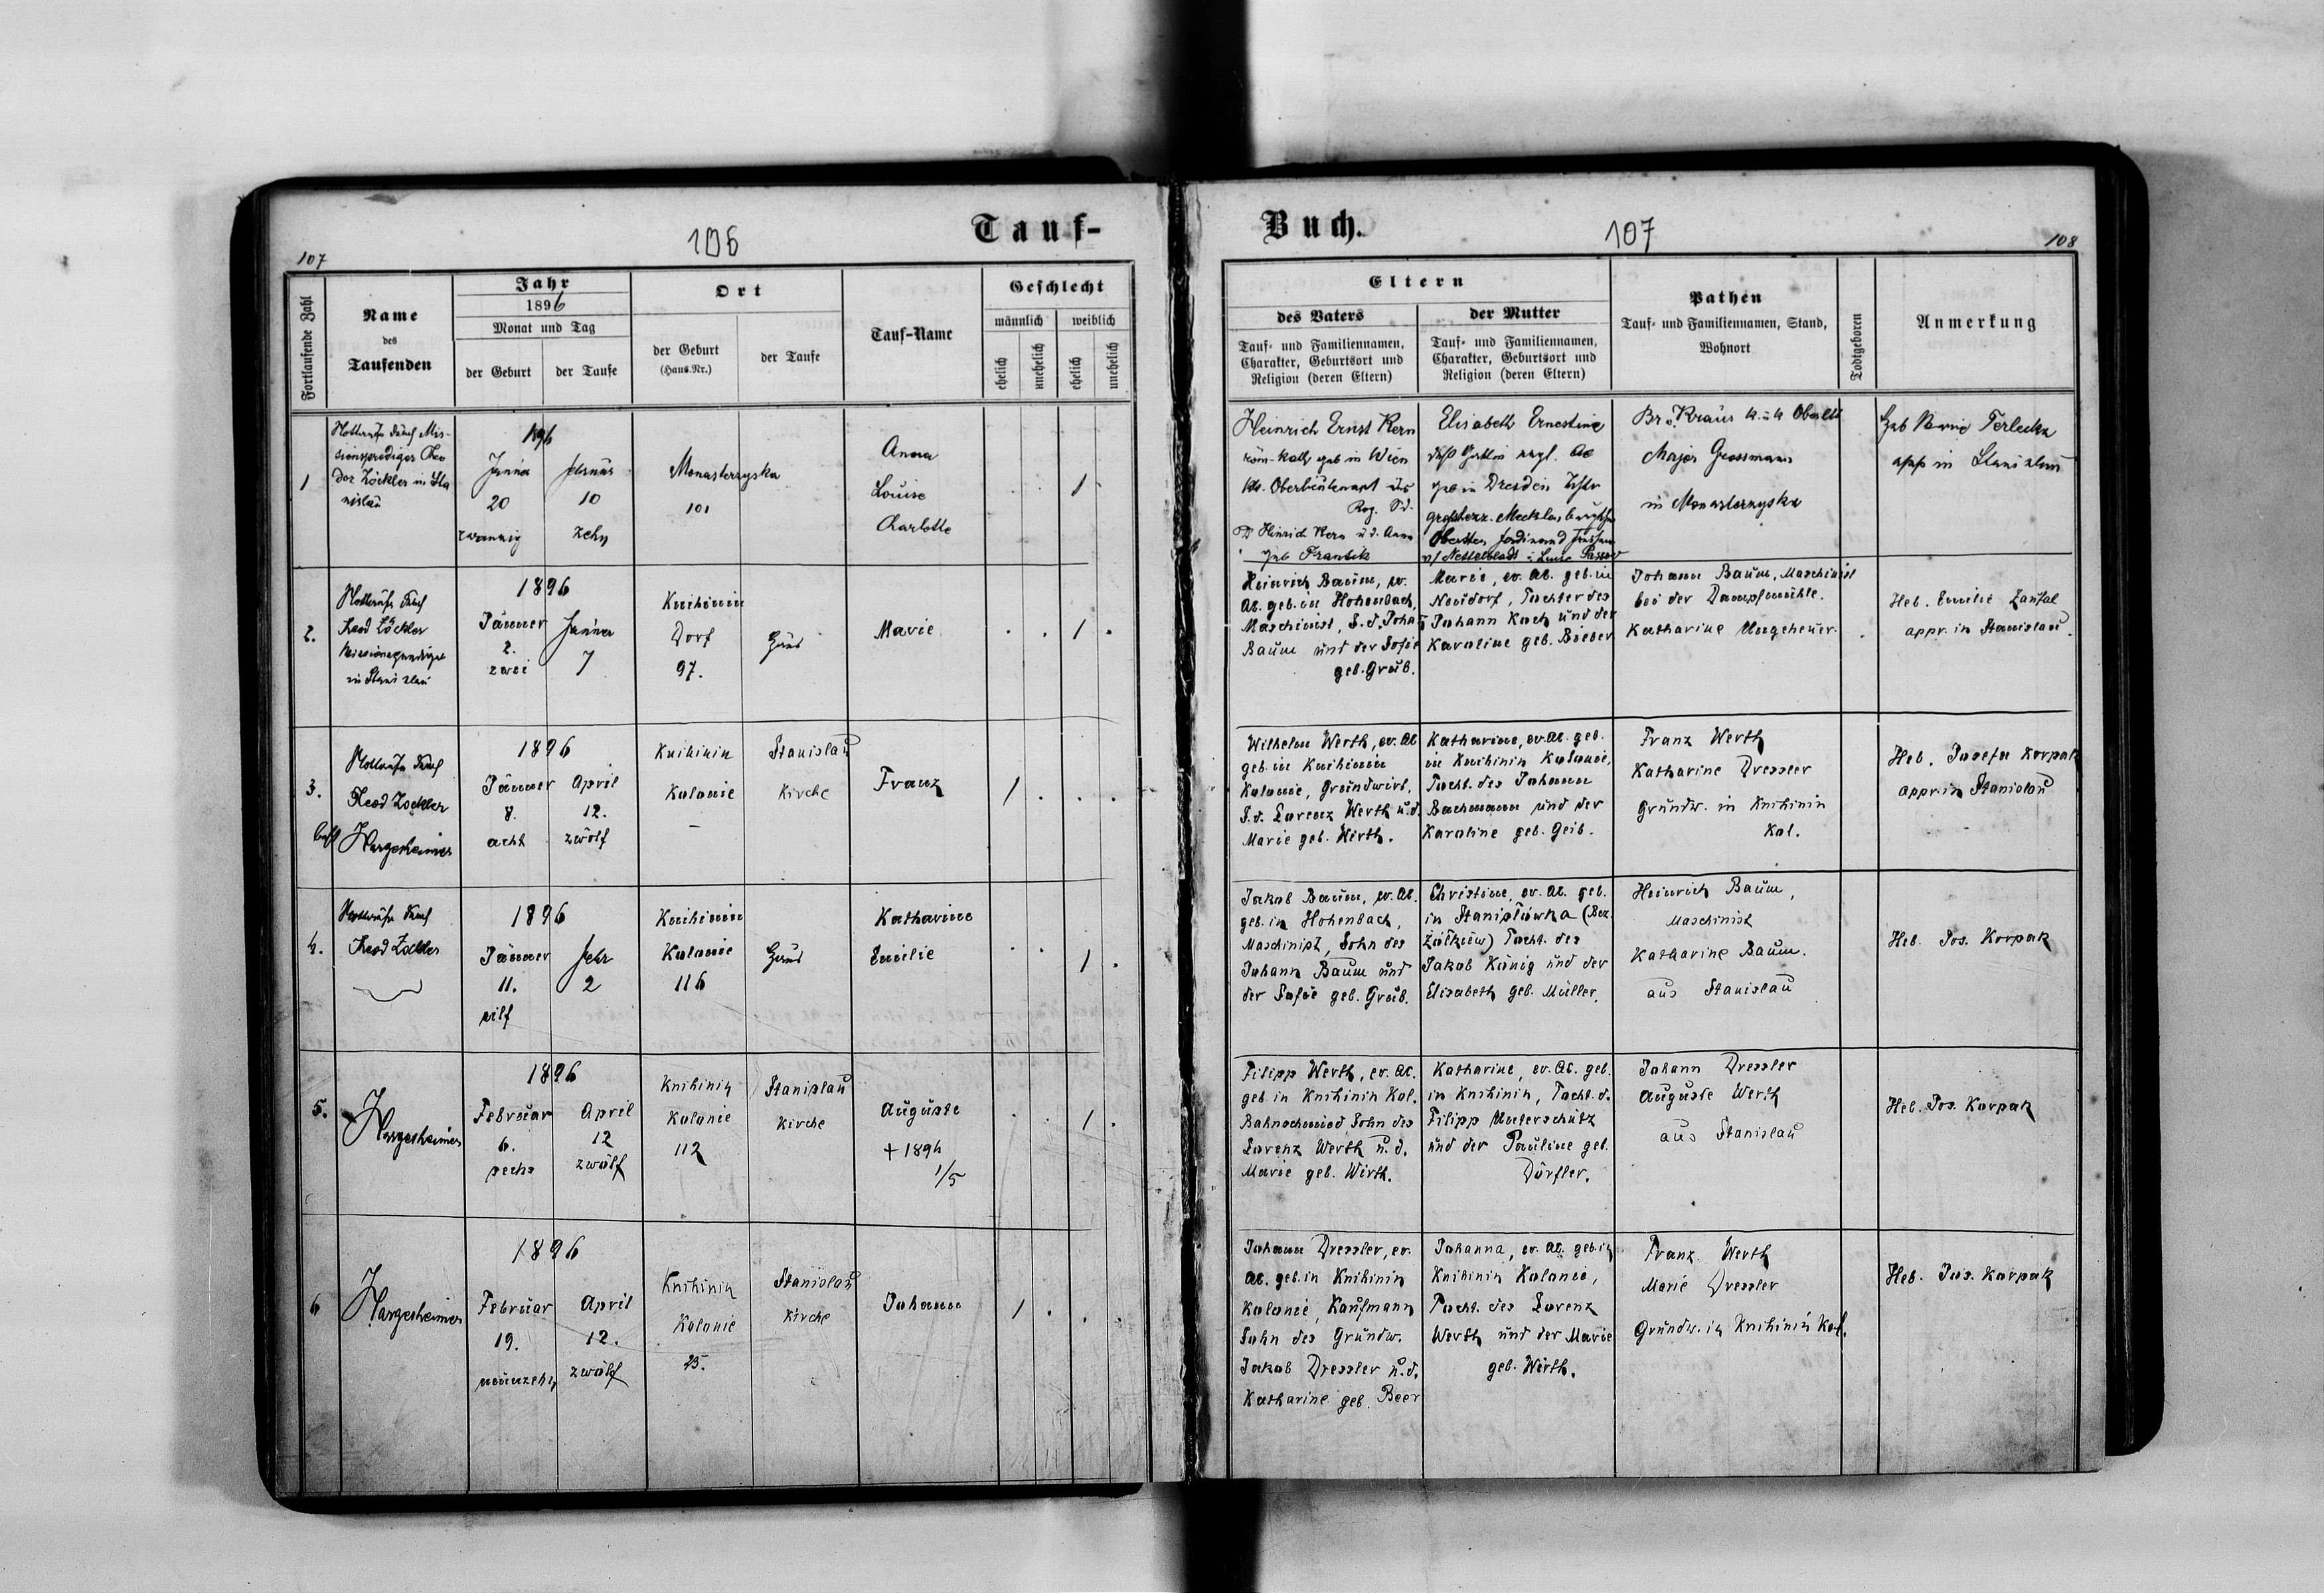 107
106
Tauf-
Fortlaufende Zahl
Name
des
Taufenden
Jahr
1896
Monat und Tag
der Geburt
der Taufe
Ort
der Geburt
(Haus-Nr.)
der Taufe
Tauf-Name
Geschlecht
männlich
weiblich
ehelich
unehelich
ehelich
unehelich
1
Nottaufe durch Mis-
sionsprediger Theo
dor Zöckler in Sta
nislau
1896
Jänner
20
zwanzig
10
zehn
Monasterzyska
101
Anna
Louise
Charlotte
1
2.
Nottaufe durch
Theod Zöckler
Missionsprediger
in Stanislau
1896
Jänner
2.
zwei
Jänner
7
Knihinin
Dorf
97.
Marie
. . 1 .
3.
Nottaufe durch
Theod Zöckler
Hargesheimer
1896
Jänner
8.
acht
April
12.
zwölf
Knihinin
Kolonie
–
Stanislau
Kirche
Franz
1 . . .
4.
Nottaufe durch
Theod Zöckler
1896
Jänner
11.
eilf
Febr
2
Knihinin
Kolonie
116
Katharine
Emilie
. . 1 .
5.
Hargesheimer
1896
Februar
6.
sechs
April
12
zwölf
Knihinin
Kolonie
112
Stanislau
Kirche
Auguste
+ 1896
1/5
. . 1 .
6
Hargesheimer
1896
Februar
19.
neunzehn
April
12.
zwölf
Knihinin
Kolonie
25.
Stanislau
Kirche
Johann
1 . . .
Buch.
107
108
Eltern
des Vaters
Tauf- und Familiennamen,
Charakter, Geburtsort und
Religion (deren Eltern)
der Mutter
Tauf- und Familiennamen,
Charakter, Geburtsort und
Religion (deren Eltern)
Pathen
Tauf- und Familiennamen, Stand,
Wohnort
Todtgeboren
Anmerkung
Heinrich Ernst Kern
röm-kath geb in Wien
Heinrich Kern u. d. Anna
geb Frantek
Elisabeth Ernestine
geb in Dresden
Grossherz. Mecklenburgischen
Obersten Ferdinand
v/ Nettelbladt
Br. v. Kraus k. u. k Oberstlt
Major Grossmann
in Monasterzyska
in Stanislau
Heinrich Baum, ev.
AC. geb. in Hohenbach,
Maschinist, S. d. Johann
Baum und der Sofie
geb. Grub.
Marie, ev. AC. geb. in
Neudorf, Tochter des
Johann Koch und der
Karoline geb. Bieber
Johann Baum, Maschinist
bei der Dampfmühle.
Katharine Ungeheuer.
Heb. Emilie
appr. in Stanislau.
Wilhelm Werth, ev. AC
geb. in Knihinin
Kolonie, Grundwirt,
S. d. Lorenz Werth u. d.
Marie geb. Wirth.
Katharine, ev. AC. geb.
in Knihinin Kolonie,
Tocht. des Johann
Bachmann und der
Karoline geb. Geib.
Franz Werth
Katharine Dressler
Grundw. in Knihinin
Kol.
Heb. Josefa Korpak
appr. in Stanislau
Jakob Baum, ev. AC.
geb. in Hohenbach,
Maschinist, Sohn des
Johann Baum und
der Sofie geb. Grub.
Christine, ev. AC. geb.
in Stanisłówka (Bez.
Żółkiew) Tocht. des
Jakob König und der
Elisabeth geb. Müller.
Heinrich Baum,
Maschinist
Katharine Baum.
aus Stanislau
Heb. Jos. Korpak
Filipp Werth, ev. AC.
geb in Knihinin Kol.
Bahnschmied, Sohn des
Lorenz Werth u. d.
Marie geb. Wirth.
Katharine, ev. AC. geb.
in Knihinin, Tocht. d.
Filipp Unterschütz
und der Pauline geb.
Dörfler.
Johann Dressler
Auguste Werth
aus Stanislau
Heb. Jos. Korpak
Johann Dressler, ev.
AC. geb. in Knihinin
Kolonie, Kaufmann
Sohn des Grundw.
Jakob Dressler u. d.
Katharine geb. Beer
Johanna, ev. AC. geb. in
Knihinin Kolonie,
Tocht. des Lorenz
Werth und der Marie
geb. Wirth.
Franz Werth
Marie Dressler
Grundw. in Knihinin Kol.
Heb. Jos. Korpak